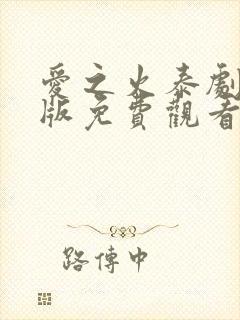 愛之火泰劇
版免費觀看
路傳中